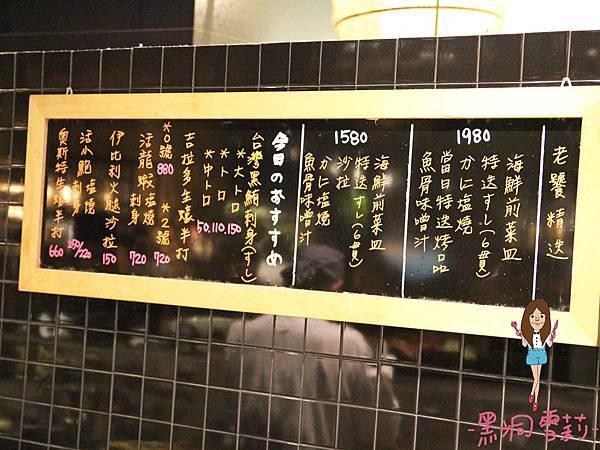 老饕精选
1980
海鮮前菜皿
特选すし(6貫)
かに塩燒
當日特选烤品
魚骨味噌汁
1580
海鮮前菜皿
特选すし(6貫)
沙拉
かに塩燒
魚骨味噌汁
今日のおすすめ
台灣黑鮪刺身(すし)
*大トロ
*トロ
*中トロ
50,110,150
吉拉多生蠔半打
*0號
880
*2號
720
活龍蝦塩燒
刺身
720
伊比利火腿沙拉
150
活小鮑塩燒
刺身
250/220
奧斯特生蠔半打
660
-黑洞雪莉-